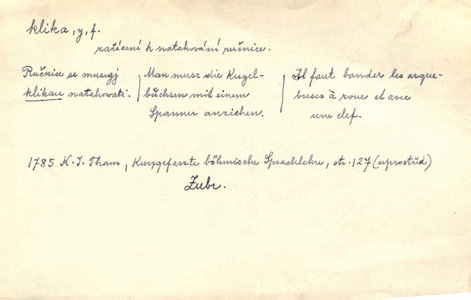 klika, y, f.
zařízení k natahování ručnice.
Ručnice se musegj
klikau natahowati.
Man muss die Kugel-
büchsen mit einem
Spanner anziehen.
Il faut bander les arque-
buses à roue et avec
une clef.
1785 K. I. Tham, Kurzgefasste böhmische Sprachlehre, str. 127 (uprostřed)
Zubr.